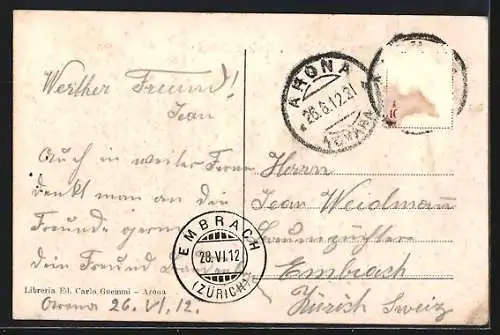 Werther Freund!
Jean
Auch in weiter Ferne
denkt man an die
Freunde gerne
dein Freund
Libreria Ed. Carlo Guenmi - Arona
Arona 26. VI. 12.
ARONA
26.6.12.21
EMBRACH
28.VI.12
(ZÜRICH)
Herrn
Jean Weidmann
Embrach
Zürich Sweiz